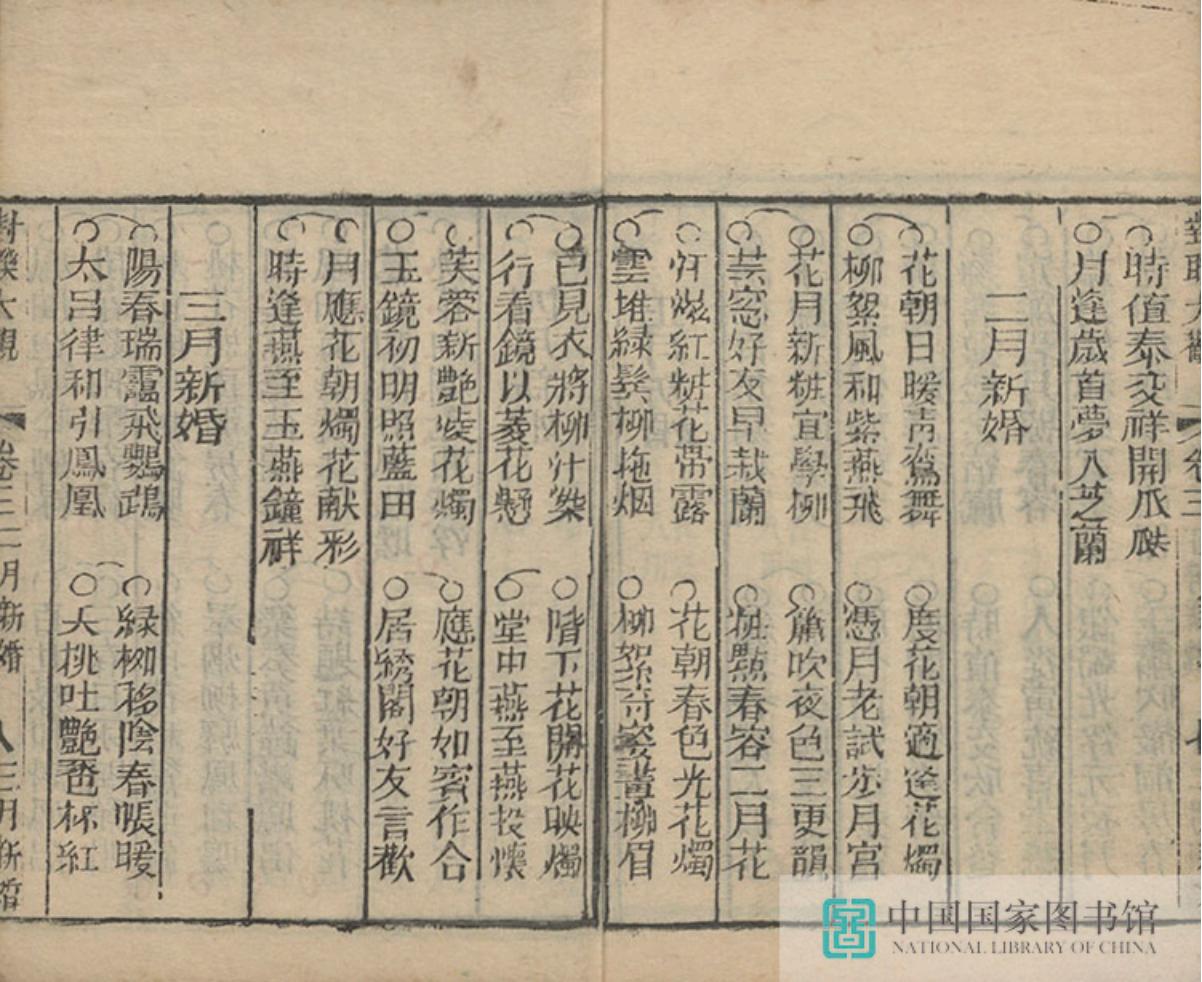 時值泰交祥開瓜瓞
月逢歲首夢入芝蘭
二月新婚
花朝日暖青鸞舞
度花朝適逢花燭
柳絮風和紫燕飛
憑月老試步月宮
花月新粧宜學柳
簫吹夜色三更韻
芸窓好友早栽蘭
粧點春容二月花
紅粧花帶露
花朝春色光花燭
雲堆綠鬂柳拖烟
柳絮奇姿畫柳眉
已見衣將柳汁染
階下花開花映燭
行看鏡以菱花懸
堂中燕至燕投懷
芙蓉新艷裝花燭
應花朝如賓作合
玉鏡初明照藍田
居綉閣好友言歡
月應花朝燭花献彩
時逢燕至玉燕鐘祥
三月新婚
陽春瑞靄飛鸚鵡
緑柳移陰春帳暖
太呂律和引鳳凰
夭桃吐艷卺杯紅
卷三二月新婚 八三月新婚
中国国家图书馆
NATIONAL LIBRARY OF CHINA